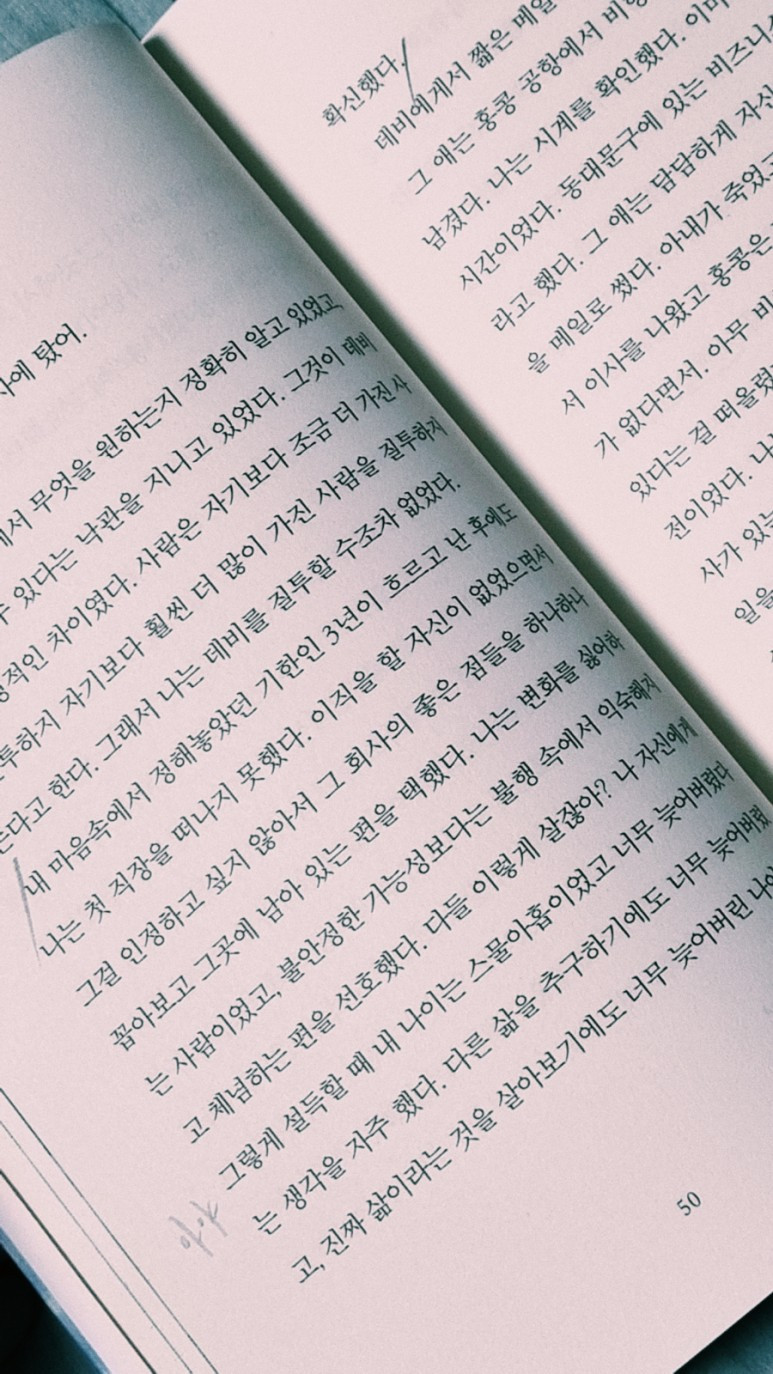 에 탔어.
서 무엇을 원하는지 정확히 알고 있었고,
수 있다는 낙관을 지니고 있었다. 그것이 데비
적인 차이였다. 사람은 자기보다 조금 더 가진 사
투하지 자기보다 훨씬 더 많이 가진 사람을 질투하지
는다고 한다. 그래서 나는 데비를 질투할 수조차 없었다.
내 마음속에서 정해놓았던 기한인 3년이 흐르고 난 후에도
나는 첫 직장을 떠나지 못했다. 이직을 할 자신이 없었으면서
그걸 인정하고 싶지 않아서 그 회사의 좋은 점들을 하나하나
꼽아보고 그곳에 남아 있는 편을 택했다. 나는 변화를 싫어하
는 사람이었고, 불안정한 가능성보다는 불행 속에서 익숙해지
고 체념하는 편을 선호했다. 다들 이렇게 살잖아? 나 자신에게
그렇게 설득할 때 내 나이는 스물아홉이었고 너무 늦어버렸다
는 생각을 자주 했다. 다른 삶을 추구하기에도 너무 늦어버렸
고, 진짜 삶이라는 것을 살아보기에도 너무 늦어버린 나이
50
확신했다.
데비에게서 짧은 메일
그 애는 홍콩 공항에서 비행
남겼다. 나는 시계를 확인했다. 이미
시간이었다. 동대문구에 있는 비즈니스
라고 했다. 그 애는 담담하게 자신
을 메일로 썼다. 아내가 죽었고
서 이사를 나왔고 홍콩은
가 없다면서. 아무 비
있다는 걸 떠올렸
전이었다. 나
사가 있는
일을